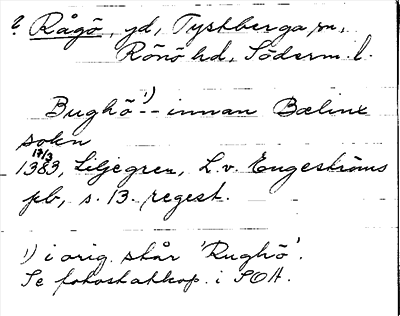 ? Rågö, gd, Tystberga sn,
Rönö hd, Söderm. l.
Bughö 1) -- innan Bælinx
sokn
17/3
1383, Liljegren, L. v. Engeströms
pb, s. 13. regest.
1) i orig. står 'Rughö'.
Se fotostatkop. i SOA.